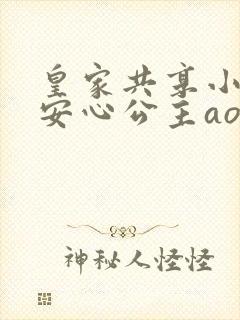 皇家共享小
安心公主ao
神秘人怪怪